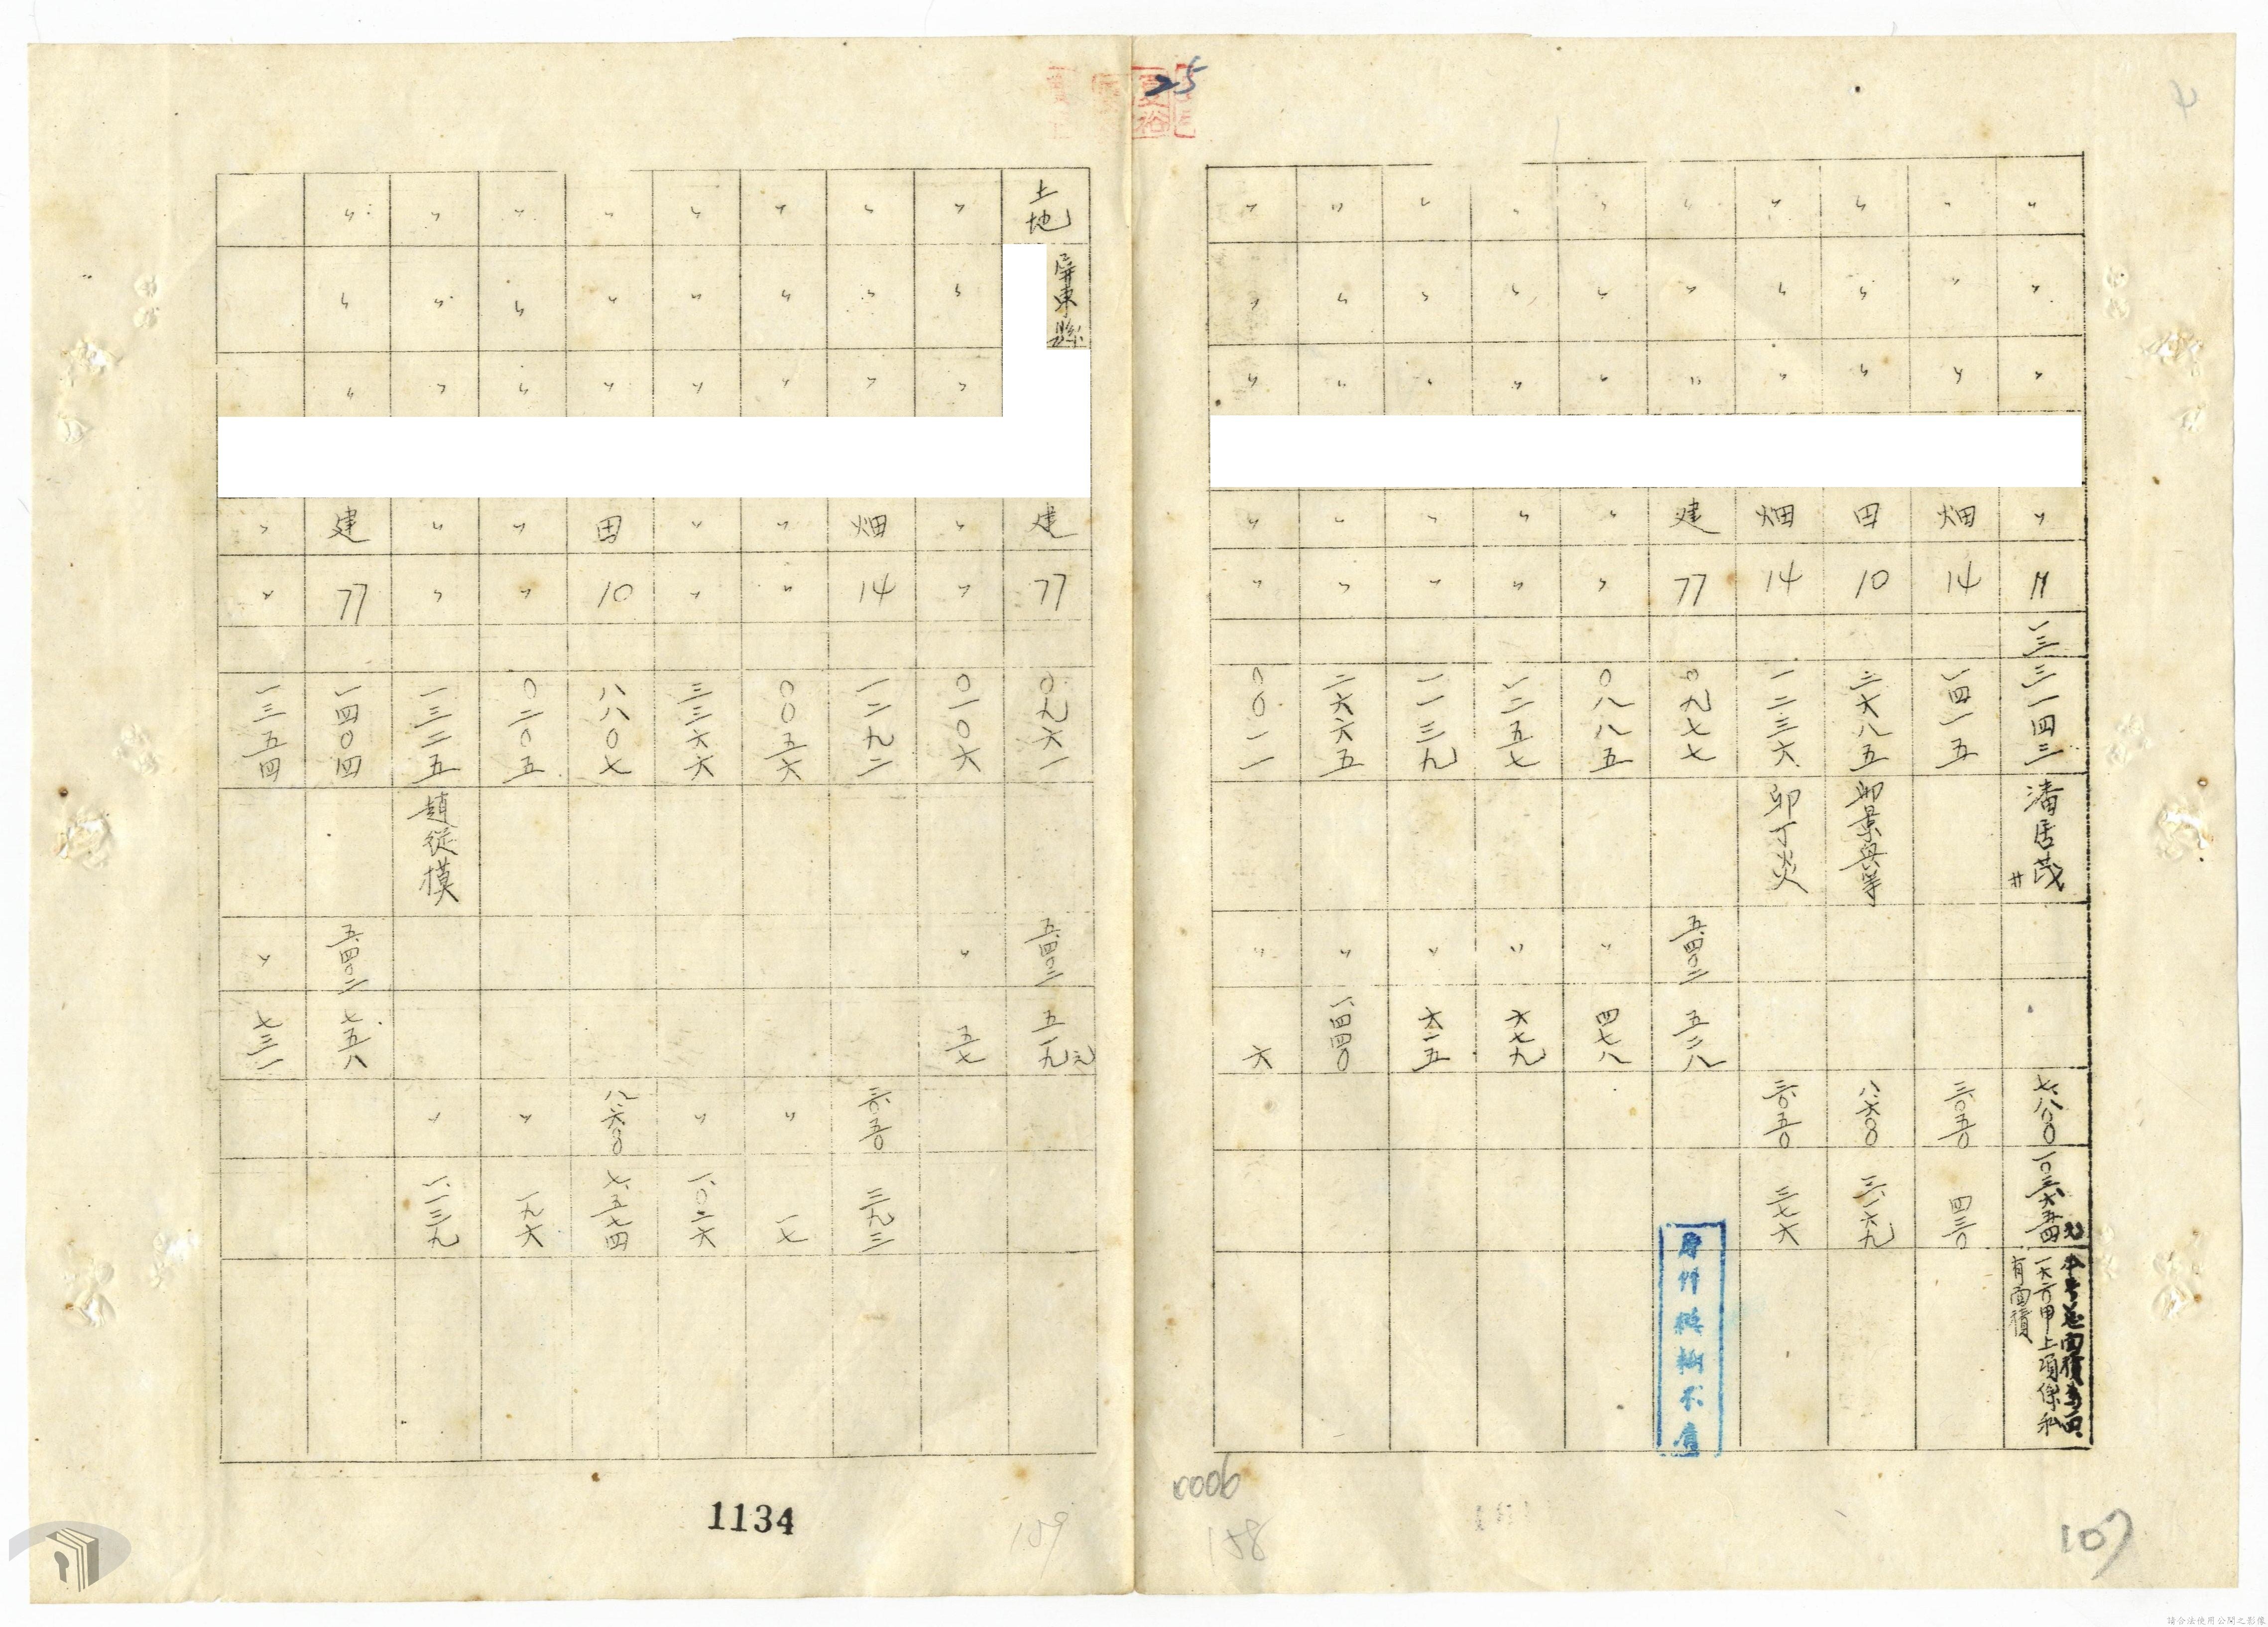 25
〃 〃 〃 〃 〃 一三 三一四三 潘居茂 七.八〇〇 一〇三.六五四元
上項係私
有面積
〃 〃 〃 畑 14 一四一五 三.〇五〇 四三〇
〃 〃 〃 田 10 三六八五 卯景興等 八.六〇〇 三.一六九
〃 〃 〃 畑 14 一二三六 卯丁炎 三.〇五〇 三七六
〃 〃 〃 建 77 〇九七七 五.四〇二 五二八
〃 〃 〃 〃 〃 〇八八五 〃 四七八
〃 〃 〃 〃 〃 一二五七 〃 六七九
〃 〃 〃 〃 〃 一一三九 〃 六一五
〃 〃 〃 〃 〃 二六六五 〃 一.四四〇
〃 〃 〃 〃 〃 〇〇一一 〃 六
107
158
土地 屏東縣 建 77 〇九六一 五.四〇二 五一九元
〃 〃 〃 〃 〃 〇一〇六 〃 五七
〃 〃 〃 畑 14 一二九二 三.〇五〇 三九三
〃 〃 〃 〃 〃 〇〇五六 〃 一七
〃 〃 〃 〃 〃 三三六六 〃 一.〇二六
〃 〃 〃 田 10 八八〇七 八.六〇〇 七.五七四
〃 〃 〃 〃 〃 〇二〇五 〃 一九六
〃 〃 〃 〃 〃 一三二五 趙從模 〃 一.一三九
〃 〃 〃 建 77 一四〇四 五.四〇二 七五八
〃 〃 一三五四 〃 七三一
1134
159
請合法使用公開之影像